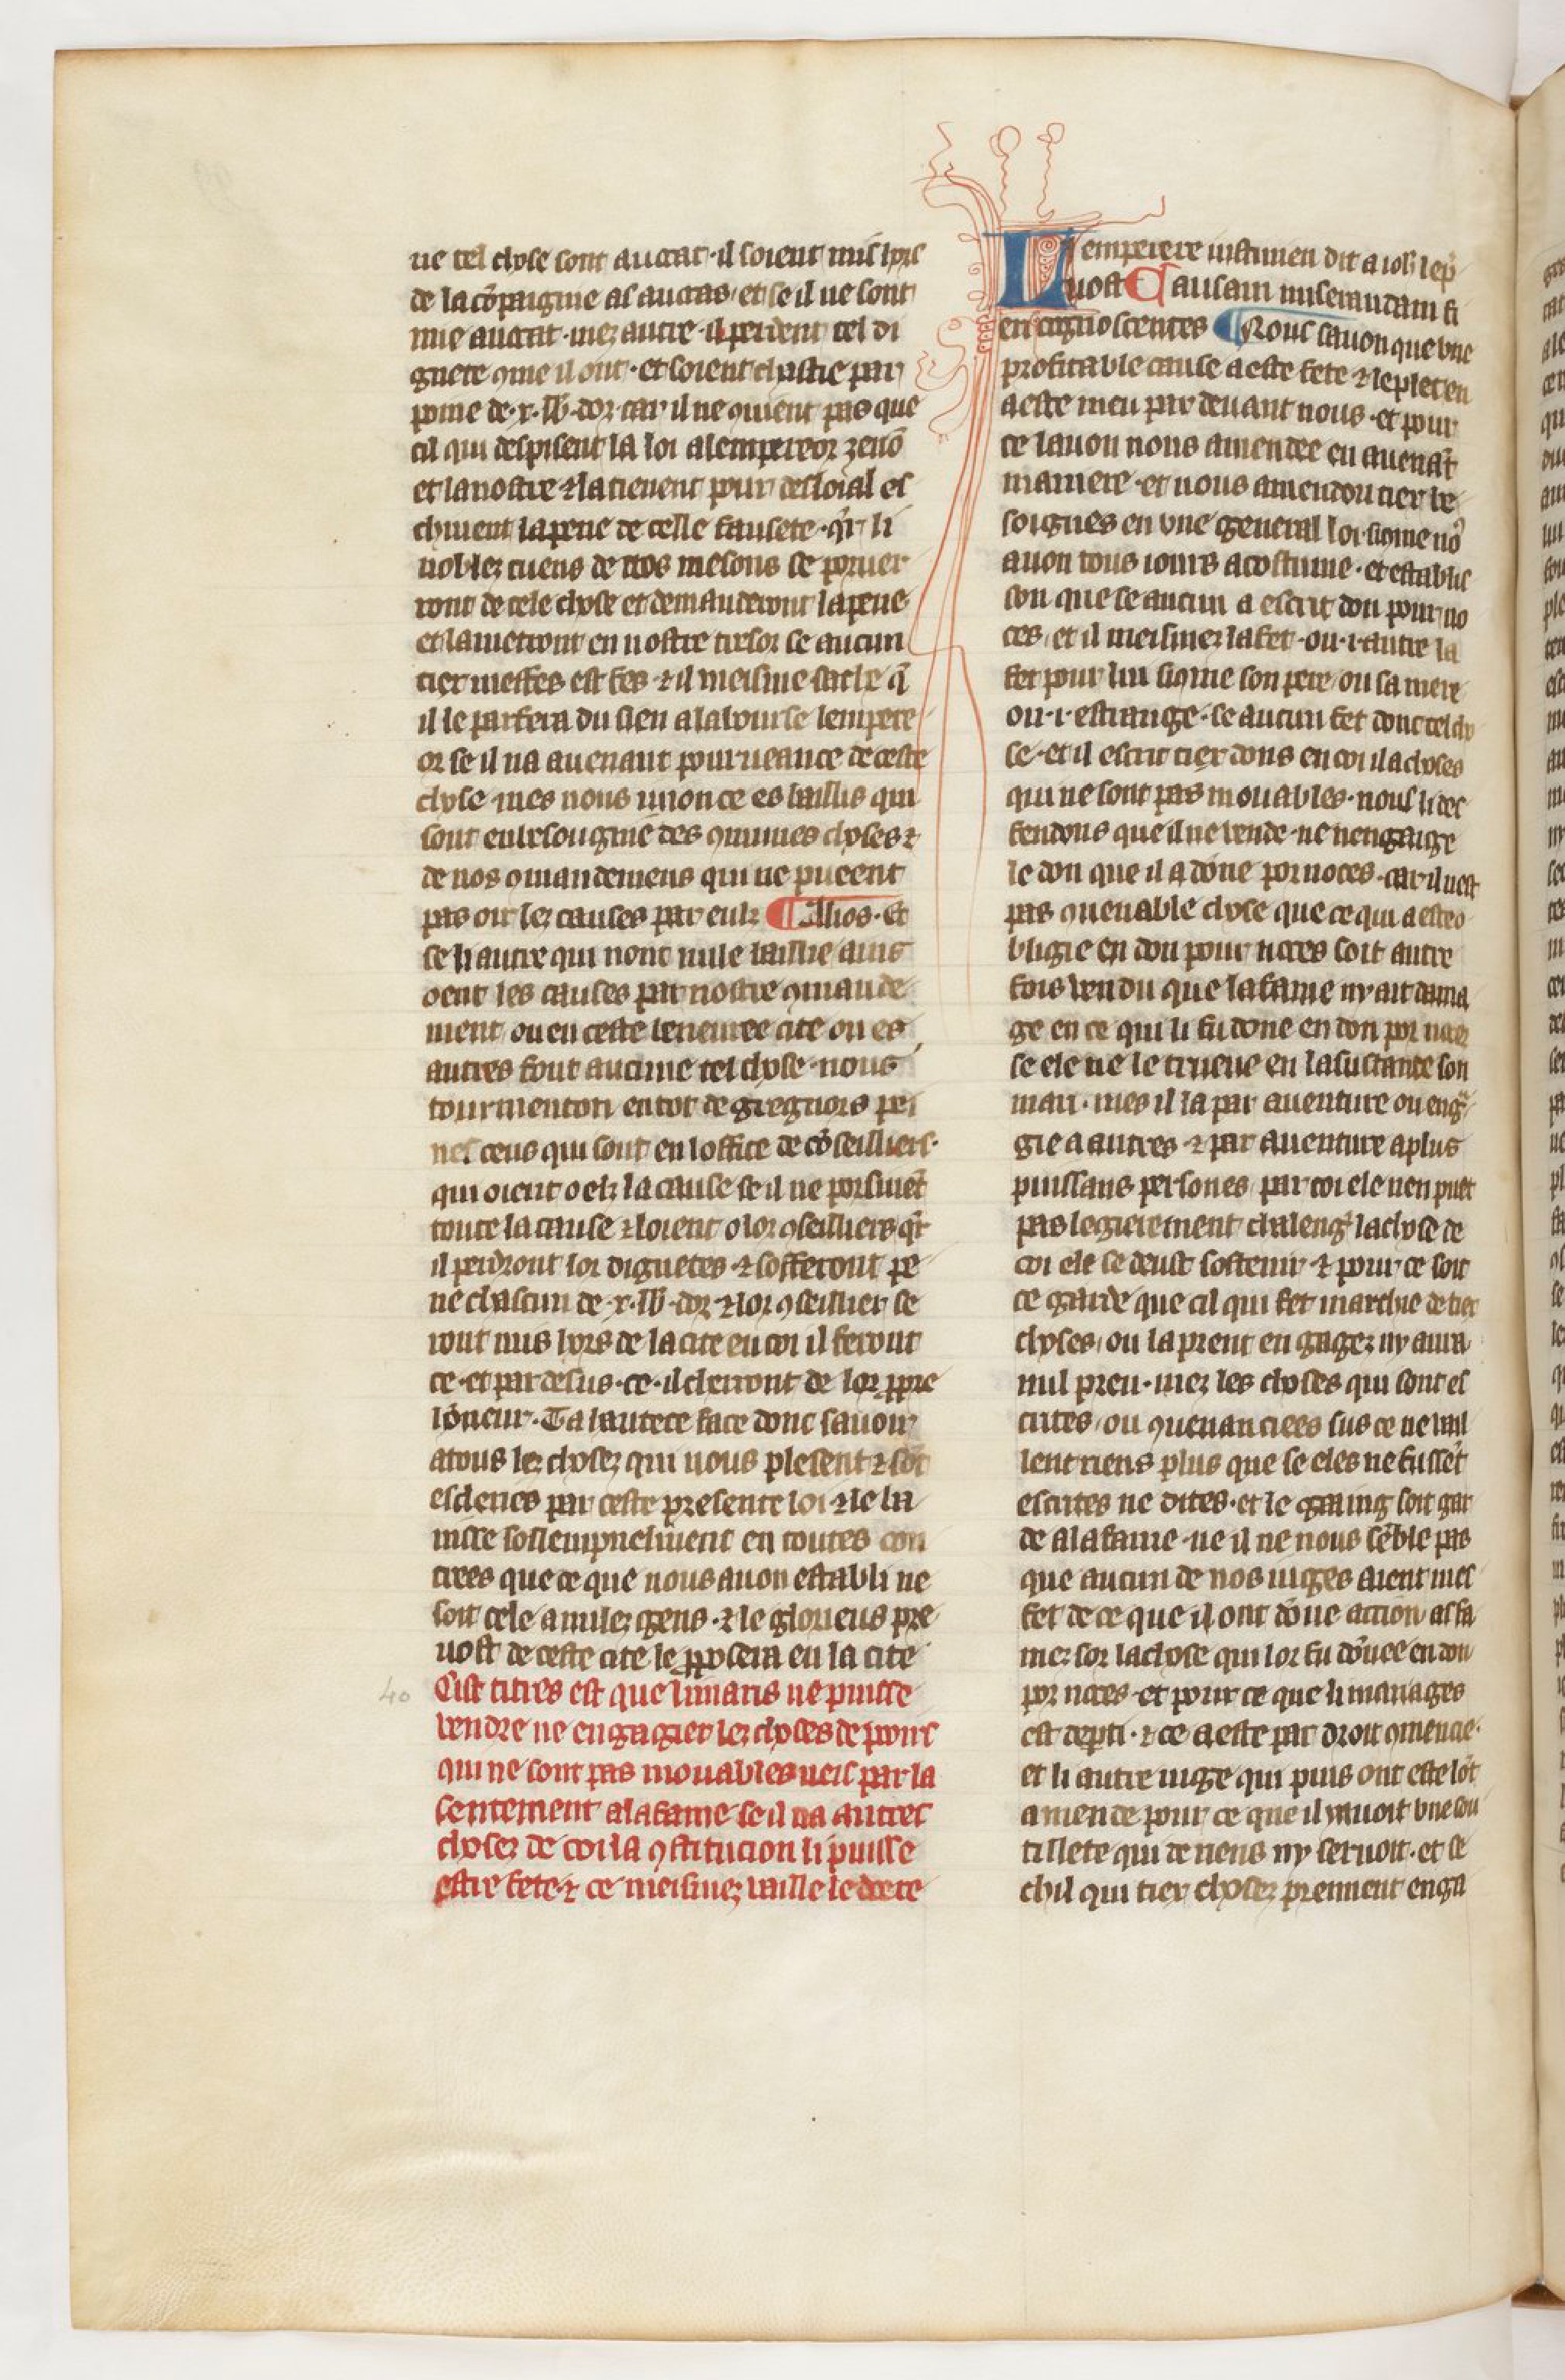 ue tel chose sont auctat · il soient mis hors
de la cõpaignie as auctas · et se il ne sont
mie auctat · mez autre · il perdent tel di
gnete ꝯme il ont · et soient chastie par
poine de · x · lb · dor · car il ne ꝯuient pas que
cil qui despisent la loi a lempereor zenõ
et la nostre ⁊ la tienent pour desloial es
chiuent la peine de celle fausete · qͣr li
nobles cuens de nos mesons se poruer
ront de cele chose et demanderont la peine
et la metront en nostre tresor se aucun
tiex meffes est fes ⁊ il meisme sache q̃
il le parfera du sien a la bourse lempere
or se il na auenant pourueance de ceste
chose mes nous iuron ce es baillis qui
sont en lesougnie des ꝯmunes choses ⁊
de nos ꝯmandemens qui ne pueent
pas oir lez causes par eulz ¶ Illios · Et
se li autre qui nont nule baillie auis
oent les causes par nostre ꝯmande
ment ou en ceste beneuree cite ou es
autres font aucune tel chose · nous
tourmenton en tot de gregnors pei
nes ceus qui sont en loffice de cõseilliers ·
qui oient o elz la cause se il ne porsuiuẽt
toute la cause ⁊ loient o lor ꝯseilliers qͣr
il perdront lor dignetes ⁊ soffreront pe
ne chascun de · x · lb · dor · ⁊ lor ꝯseillier se
ront mis hors de la cite en coi il feront
ce · et par desus · ce · il cherront de lor ꝓpre
hõneur · Ta hautece face donc sauoir
a tous lez chosez qui nous plesent ⁊ sõt
escleries par ceste presente loi ⁊ le la
mete sollempnelment en toutes con
trees que ce que nous auon establi ne
soit cele a nulez gens · ⁊ le glorieus pre
uost de ceste cite le ꝓposera en la cite
40
Cist titres est que li maris ne puisse
vendre ne engagier lez choses de pour
qui ne sont pas mouables neis par la
sentement a la fame se il na autres
chosez de coi la ꝯstitucion li puisse
estre fete · ⁊ ce meismez vaille le de ce
Lemperere iustinien dit a ioh̃ le p̃
uost Causam miserandam fi
eri cognoscentes ¶ Nous sauon que vne
profitable cause a este fete ⁊ le plet en
a este meu par deuant nous · et pour
ce lauon nous amendee en auenãt
maniere · et nous amendon tiex be
soignes en vne general loi · si ꝯme no9
auon tous iours acostume · et establis
son que se aucun a escrit don pour no
ces · et il meismez la fet · ou · i · autre la
fet pour lui si ꝯme son pere · ou sa mere
ou · i · estrange · se aucun fet donc tel cho
se · et il escrit tiex dons en coi il a choses
qui ne sont pas mouables · nous li def
fendons que il ne vende · ne nengaige
le don que il a dõne por noces · car il nest
pas ꝯuenable chose que ce qui a este o
bligie en don pour noces soit autre
fois vendu que la fame ny ait dama
ge en ce qui li fu done en don por noces
se ele ne le trueue en la sustance son
mari · mes il la par auenture ou engͣ
gie a autres · ⁊ par auenture a plus
puissans persones par coi ele nen puet
pas legierement chaleng̃ la chose de
coi ele se deust sostenir · ⁊ pour ce soit
ce garde que cil qui fet marchie de tiex
choses · ou la prent en gagez ny aura
nul preu · mez les choses qui sont es
crites · ou ꝯuenanciees sus ce ne vail
lent riens plus que se eles ne fussẽt
escrites ne dites · et le gaing soit gar
de a la fame · ne il ne nous sẽble pas
que aucun de nos iuges aient mes
fet de ce que il ont dõne action as fa
mez sor la chose qui lor fu dõnee en don
por noces · et pour ce que li mariages
est depti · ⁊ ce a este par droit ꝯmencie ·
et li autre iuge qui puis ont este lõt
amende pour ce que il y auoit vne sou
tillete qui de riens ny seruoit · et se
chil qui tiex chosez prennent en ga